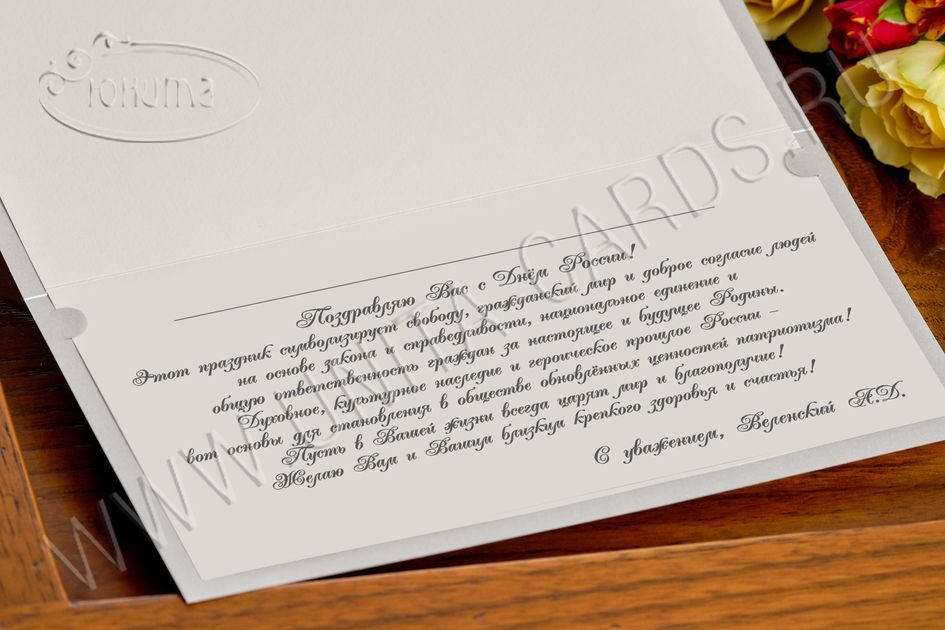 Юнита
Поздравляю Вас с Днём России!
Этот праздник символизирует свободу, гражданский мир и доброе согласие людей
на основе закона и справедливости, национальное единение и
общую ответственность граждан за настоящее и будущее Родины.
Духовное, культурное наследие и героическое прошлое России –
вот основы для становления в обществе обновлённых ценностей патриотизма!
Пусть в Вашей жизни всегда царят мир и благополучие!
Желаю Вам и Вашим близким крепкого здоровья и счастья!
С уважением, Веленский А.Д.
WWW.UNITA-CARDS.RU